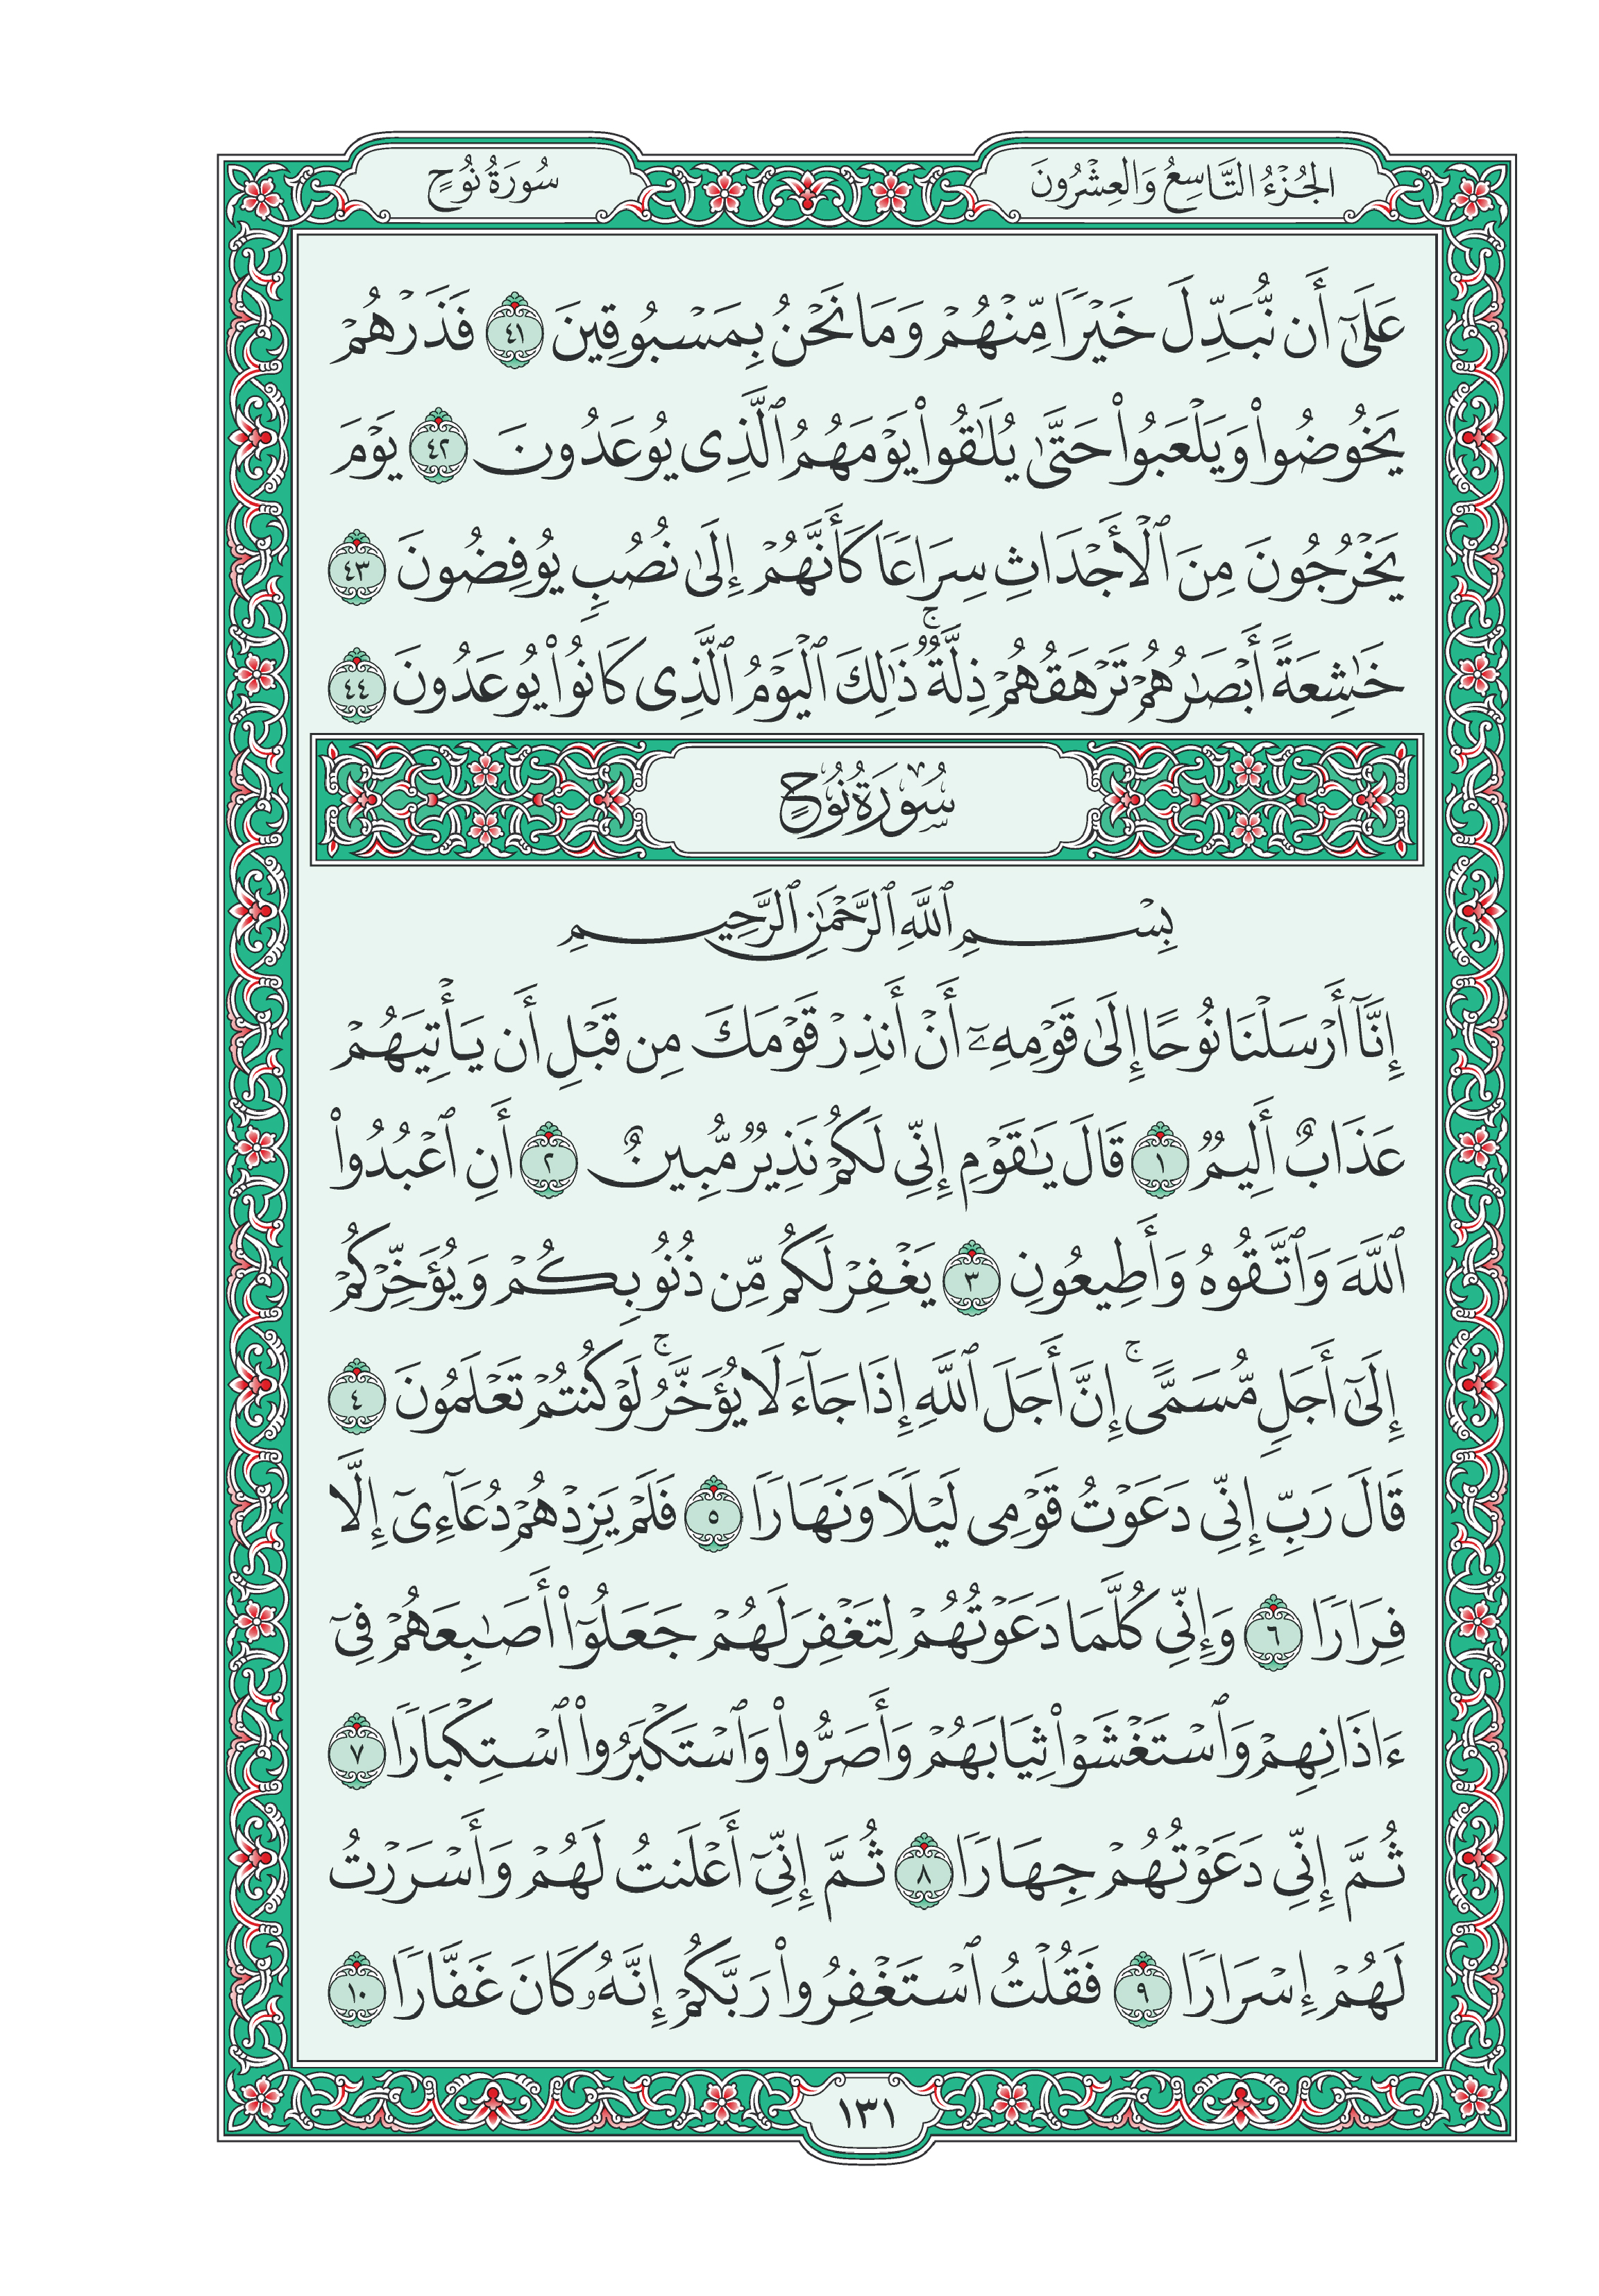 الجُزْءُ التَّاسِعُ وَالعِشْرُونَ
سُورَةُ نُوحٍ
عَلَىٰٓ أَن نُّبَدِّلَ خَيْرًا مِّنْهُمْ وَمَا نَحْنُ بِمَسْبُوقِينَ ٤١ فَذَرْهُمْ
يَخُوضُوا۟ وَيَلْعَبُوا۟ حَتَّىٰ يُلَـٰقُوا۟ يَوْمَهُمُ ٱلَّذِى يُوعَدُونَ ٤٢ يَوْمَ
يَخْرُجُونَ مِنَ ٱلْأَجْدَاثِ سِرَاعًا كَأَنَّهُمْ إِلَىٰ نُصُبٍ يُوفِضُونَ ٤٣
خَـٰشِعَةً أَبْصَـٰرُهُمْ تَرْهَقُهُمْ ذِلَّةٌ ۚ ذَٰلِكَ ٱلْيَوْمُ ٱلَّذِى كَانُوا۟ يُوعَدُونَ ٤٤
سُورَةُ نُوحٍ
بِسْمِ ٱللَّهِ ٱلرَّحْمَـٰنِ ٱلرَّحِيمِ
إِنَّآ أَرْسَلْنَا نُوحًا إِلَىٰ قَوْمِهِۦٓ أَنْ أَنذِرْ قَوْمَكَ مِن قَبْلِ أَن يَأْتِيَهُمْ
عَذَابٌ أَلِيمٌ ١ قَالَ يَـٰقَوْمِ إِنِّى لَكُمْ نَذِيرٌ مُّبِينٌ ٢ أَنِ ٱعْبُدُوا۟
ٱللَّهَ وَٱتَّقُوهُ وَأَطِيعُونِ ٣ يَغْفِرْ لَكُم مِّن ذُنُوبِكُمْ وَيُؤَخِّرْكُمْ
إِلَىٰٓ أَجَلٍ مُّسَمًّى ۚ إِنَّ أَجَلَ ٱللَّهِ إِذَا جَآءَ لَا يُؤَخَّرُ ۚ لَوْ كُنتُمْ تَعْلَمُونَ ٤
قَالَ رَبِّ إِنِّى دَعَوْتُ قَوْمِى لَيْلًا وَنَهَارًا ٥ فَلَمْ يَزِدْهُمْ دُعَآءِىٓ إِلَّا
فِرَارًا ٦ وَإِنِّى كُلَّمَا دَعَوْتُهُمْ لِتَغْفِرَ لَهُمْ جَعَلُوٓا۟ أَصَـٰبِعَهُمْ فِىٓ
ءَاذَانِهِمْ وَٱسْتَغْشَوْا۟ ثِيَابَهُمْ وَأَصَرُّوا۟ وَٱسْتَكْبَرُوا۟ ٱسْتِكْبَارًا ٧
ثُمَّ إِنِّى دَعَوْتُهُمْ جِهَارًا ٨ ثُمَّ إِنِّىٓ أَعْلَنتُ لَهُمْ وَأَسْرَرْتُ
لَهُمْ إِسْرَارًا ٩ فَقُلْتُ ٱسْتَغْفِرُوا۟ رَبَّكُمْ إِنَّهُۥ كَانَ غَفَّارًا ١٠
١٣١